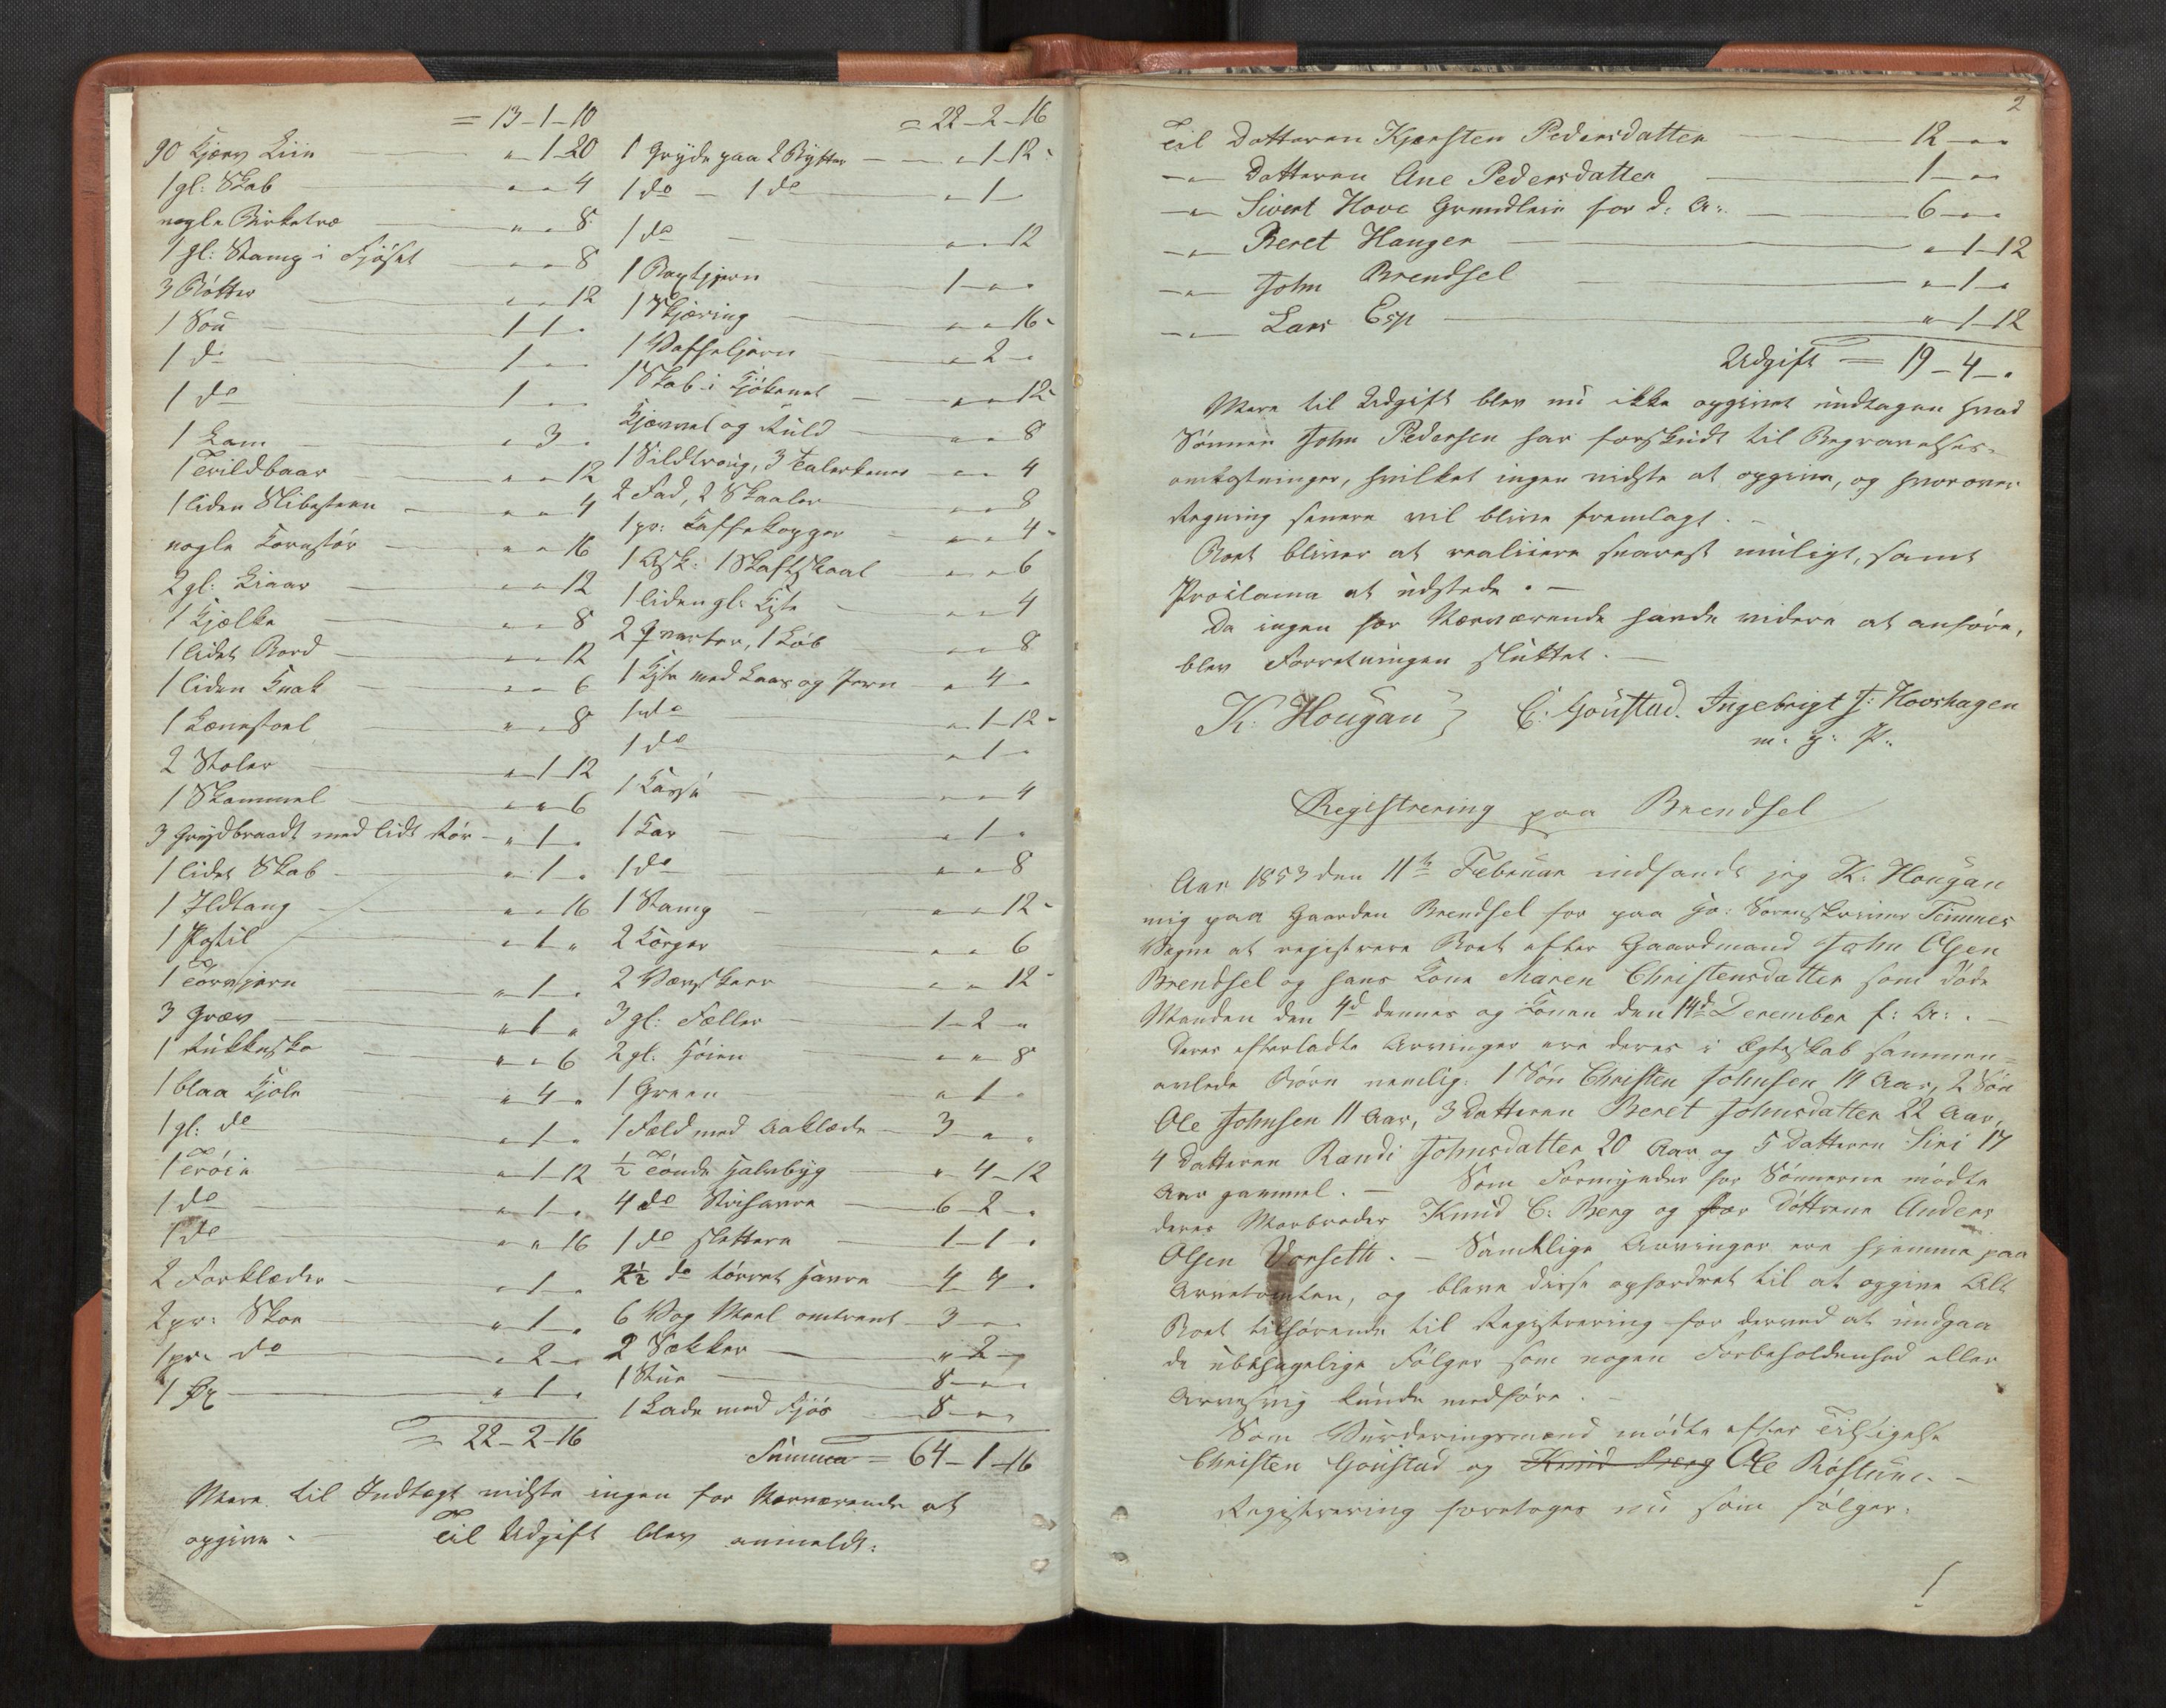 = 13-1-10
90 Kjærv Liin " 1-20
1 gl: Skab " " 4
nogle Birketræ " " 8
1 gl: Stamp i Fjøset " " 8
3 Bøtter " " 12
1 Sou 1-1 "
1 do 1 " "
1 do 1 " "
1 Lam " 3 "
1 Trildbaar " " 12
1 liden Slibesteen " " 4
nogle Kornstör " " 16
2 gl: Liaar " " 12
1 Kjælke " " 8
1 lidet Bord " " 12
1 liden Knak " " 6
1 Lænestoel " " 8
2 Stoler " 1-12
1 Skammel " " 6
3 Grydbraadt med lidt Rör " 1 "
1 lidet Skab " 1 "
1 Ildtang " " 16
1 Postil " 1 "
1 Torvjern " 1 "
3 Græv " 1 "
1 " " 6
1 blaa Kjole " 4 "
1 gl: do " 1 "
1 Tröie " 1-12
1 do " 1 "
1 do " " 16
2 Forklæder " 1 "
2 pr: Skoe " 1 "
1 pr: do " 2 "
1 Öx " 1 "
= 22-2-16
= 22-2-16
1 Gryde paa 2 Bytter " 1-12
1 do - 1 do " 1 "
1 do " " 12
1 1 " "
1 Skjæring " " 16
1 Vaffeljern " 2 "
1 Skab i Kjökenet " " 12
Kjærrel og Ruld " " 8
1 Sildtroug, 3 Talerkener " " 4
2 Fad, 2 Skaaler " " 8
1 pr: Kaffekopper " " 4
1 Ask: 1 Skaftskaal " " 6
1 liden gl: Kiste " " 4
2 Qvarter, 1 Löb " " 8
1 Kiste med Laas og Jern " 4 "
1 do " 1-12
1 do " 1 "
1 " " 4
1 Kar " 1 "
1 do " " 8
1 Stamp " " 12
2 Korger " " 6
2 " " 12
3 gl: Fæller 1-2 "
2 gl: Hoien " " 8
1 Green " 1 "
1 Fæld med Aaklæde 3 " "
½ Tönde Halvbyg " 4-12
4 do Blihavre 6-2 "
1 do slettere 1-1 "
2½ do tørret Havre 4-4 "
6 Vog Meel omtrent 3 " "
2 Sækker " 2 "
1 Stue 8 " "
1 Lade med Fjös 8 " "
Summa = 64-1-16
Mere til Indtægt vidste ingen for Nærværende at
opgive. Til Udgift blev anmeldt:
2
Til Datteren Kjersten Pedersdatter 12 " "
- " - Datteren Ane Pedersdatter 1 " "
- " - Sivert Hove Grundleie for d: A: 6 " "
- " - Beret Haugen " 1-12
- " - John Brendsel " 1 "
- " - Lars Esp " 1-12
Udgift = 19-4 "
Mere til Udgift blev nu ikke opgivet undtagen hvad
Sønnen John Pedersen har forskudt til Begravelses-
omkostninger, hvilket ingen vidste at opgive, og hvorover
Regning senere vil blive fremlagt.
Boet bliver at realiiere snarest muligt, samt
Proclama at udstede. -
Da ingen for Nærværende havde videre at anføre,
blev Forretningen sluttet. -
K: Hougan } C: Goustad. Ingebrigt J: Hovshagen
m: f: P:
Registrering paa Brendsel
Aar 1853 den 11te Februar indfandt jeg K: Hougan
mig paa Gaarden Brendsel for paa Hr: Sorenskriver Finnnes
Vegne at registrere Boet efter Gaardmand John Olsen
Brendsel og hans Kone Maren Christensdatter som døde
Manden den 4d dennes og Konen den 14de December f: A: . -
Deres efterladte Arvinger ere deres i Ægteskab sammen=
avlede Börn nemlig: 1 Sön Christen Johnsen 14 Aar, 2 Sön
Ole Johnsen 11 Aar, 3 Datteren Beret Johnsdatter 22 Aar,
4 Datteren Randi Johnsdatter 20 Aar og 5 Datteren Siri 17
Aar gammel. - Som Formynder for Sønnerne mödte
deres Morbroder Knud C: Berg og for Döttrene Anders
Olsen Vorseth. - Samtlige Arvinger ere hjemme paa
Arvetomten, og bleve disse opfordret til at opgive Alt
Boet tilhørende til Registrering for derved at undgaa
de ubehagelige Følger som nogen Forbeholdenhed eller
Arvesvig kunde medføre. -
Som Vurderingsmænd mödte efter Tilsigelse
Christen Goustad og Knud Berg Ole Röstuen. -
Registrering foretoges nu som følger: